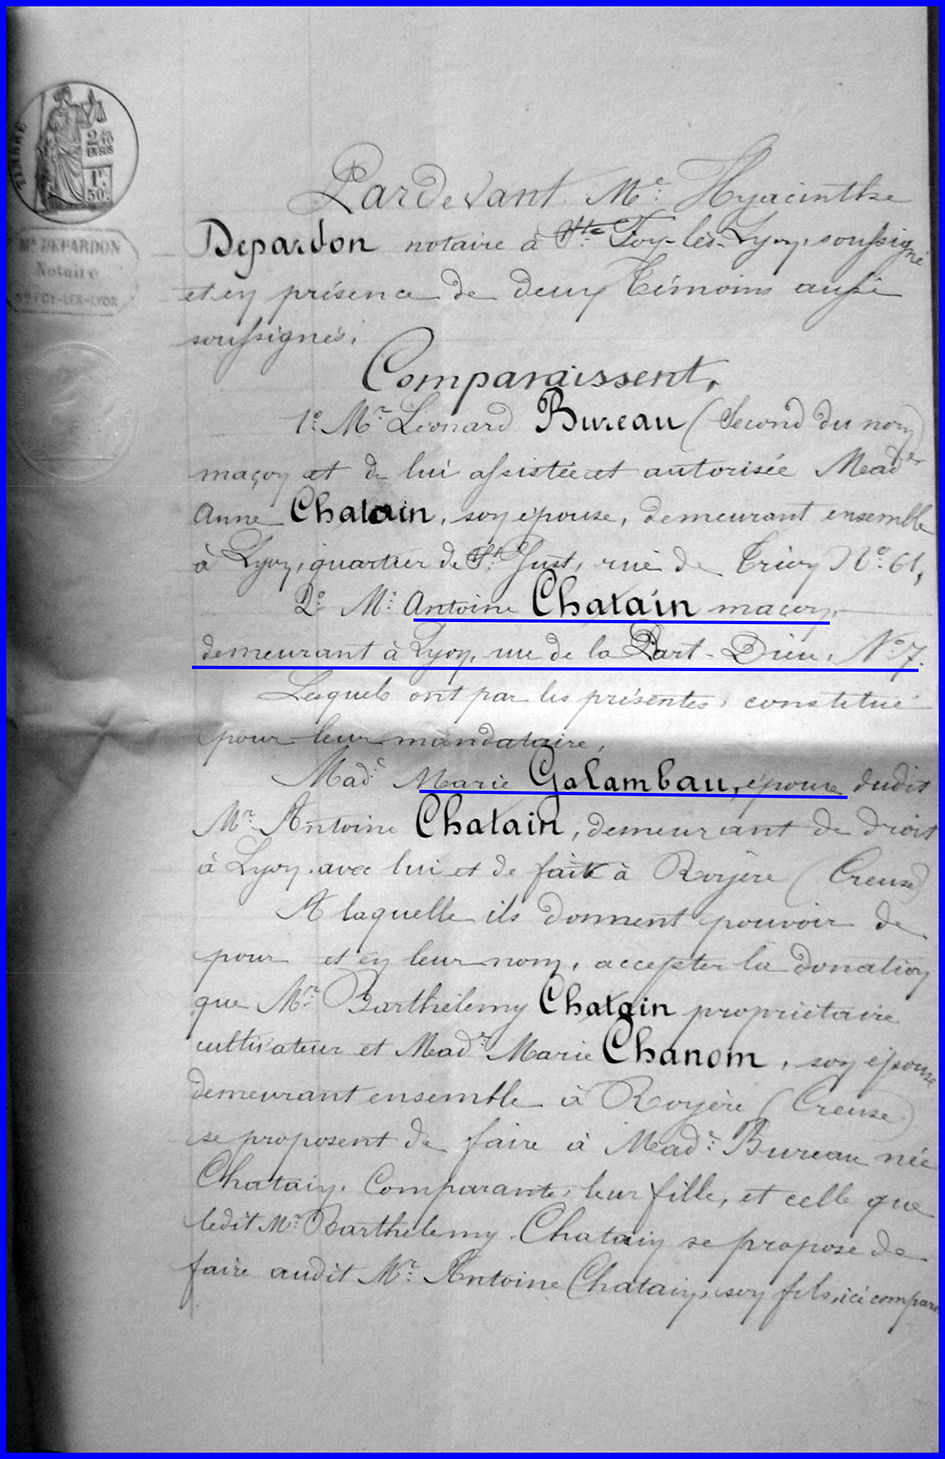 TIMBRE
2/10
EN SUS
1F
50C
Me DEPARDON
Notaire
Ste FOY-LES-LYON
Pardevant Me Hyacinthe
Depardon notaire à Ste Foy-lès-Lyon, soussigné
et en présence de deux témoins aussi
soussignés.
Comparaissent,
1o Mr Léonard Bureau (Second du nom)
maçon et de lui assistée et autorisée Made
Anne Chatain, son épouse, demeurant ensemble
à Lyon, quartier de St Just, rue de Trion No 61,
2o Mr Antoine Chatain maçon,
demeurant à Lyon, rue de la Part-Dieu, No 7.
Lesquels ont par les présentes, constitué
pour leur mandataire,
Made Marie Galambau, épouse dudit
Mr Antoine Chatain, demeurant de droit
à Lyon avec lui et de fait à Royère (Creuse)
A laquelle ils donnent pouvoir de
pour et en leur nom, accepter la donation
que Mr Barthélemy Chatain propriétaire
cultivateur et Made Marie Chanom, son épouse
demeurant ensemble à Royère (Creuse)
se proposent de faire à Made Bureau née
Chatain, Comparante, leur fille, et celle que
ledit Mr Barthélemy Chatain se propose de
faire audit Mr Antoine Chatain, son fils, ici compara